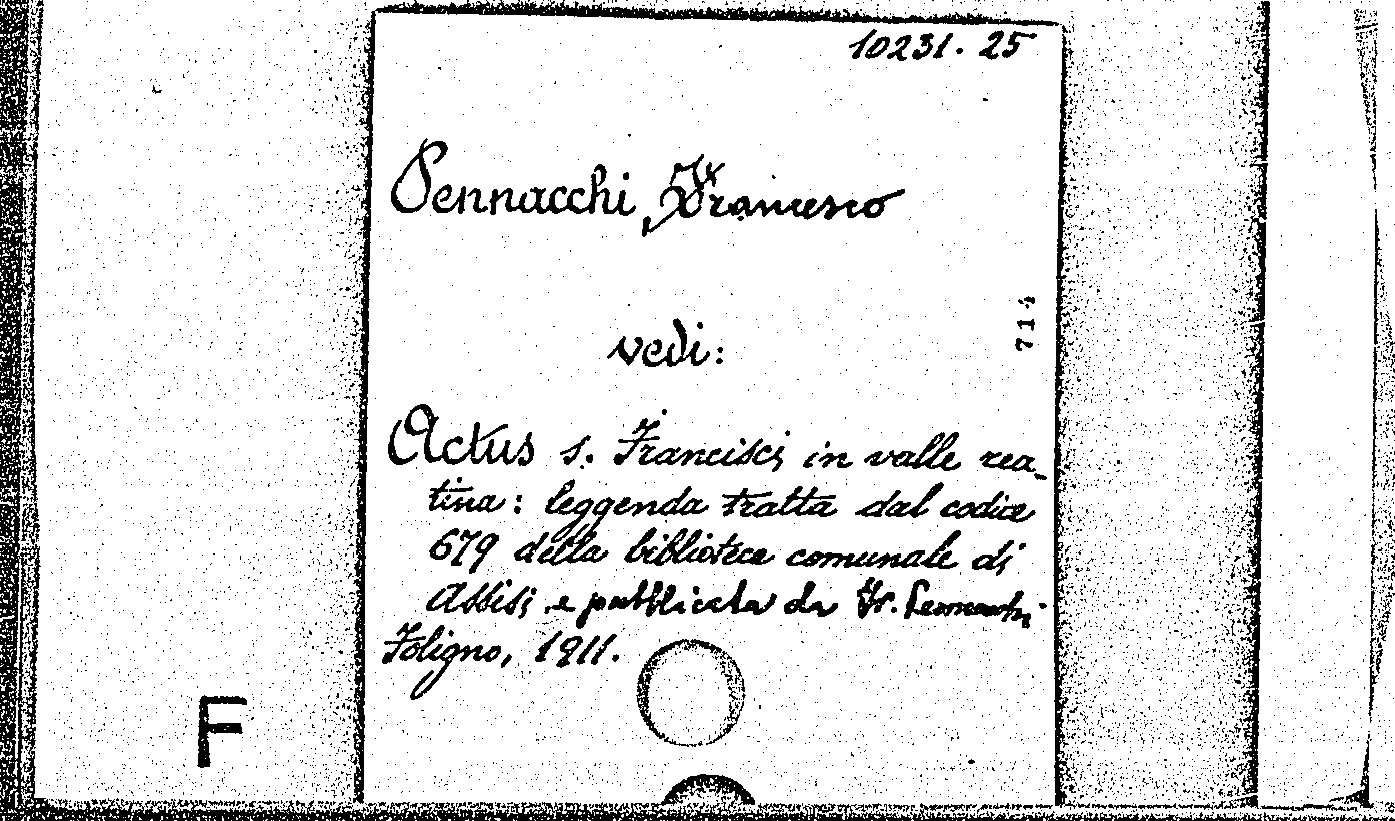 10231. 25
Pennacchi, Francesco
714
vedi:
Actus s. Francisci in valle rea-
tina: leggenda tratta dal codice
679 della biblioteca comunale di
Assisi e pubblicata da Fr. Pennacchi
Foligno, 1911.
F